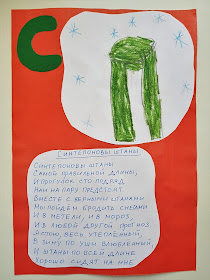 С
СИНТЕПОНОВЫ ШТАНЫ
СИНТЕПОНОВЫ ШТАНЫ
САМОЙ ПРАВИЛЬНОЙ ДЛИНЫ,
И ПРОГУЛОК СТО ПОДРЯД
НАМ НА ПАРУ ПРЕДСТОЯТ.
ВМЕСТЕ С ВЕРНЫМИ ШТАНАМИ
МЫ ПОЙДЁМ БРОДИТЬ СНЕГАМИ
И В МЕТЕЛИ, И В МОРОЗ,
И В ЛЮБОЙ ДРУГОЙ ПРОГНОЗ.
ВЕСЬ УТЕПЛЁННЫЙ,
В ЗИМУ ПО УШИ ВЛЮБЛЁННЫЙ,
И ШТАНЫ ПО ВСЕЙ ДЛИНЕ
ХОРОШО СИДЯТ НА МНЕ.